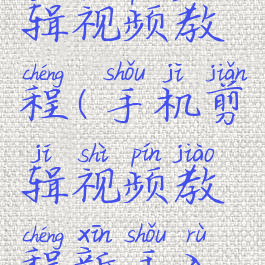 辑视频教
chéng shǒu jī jiǎn
程(手机剪
jí shì pín jiào
辑视频教
chéng xīn shǒu rù
程新手入